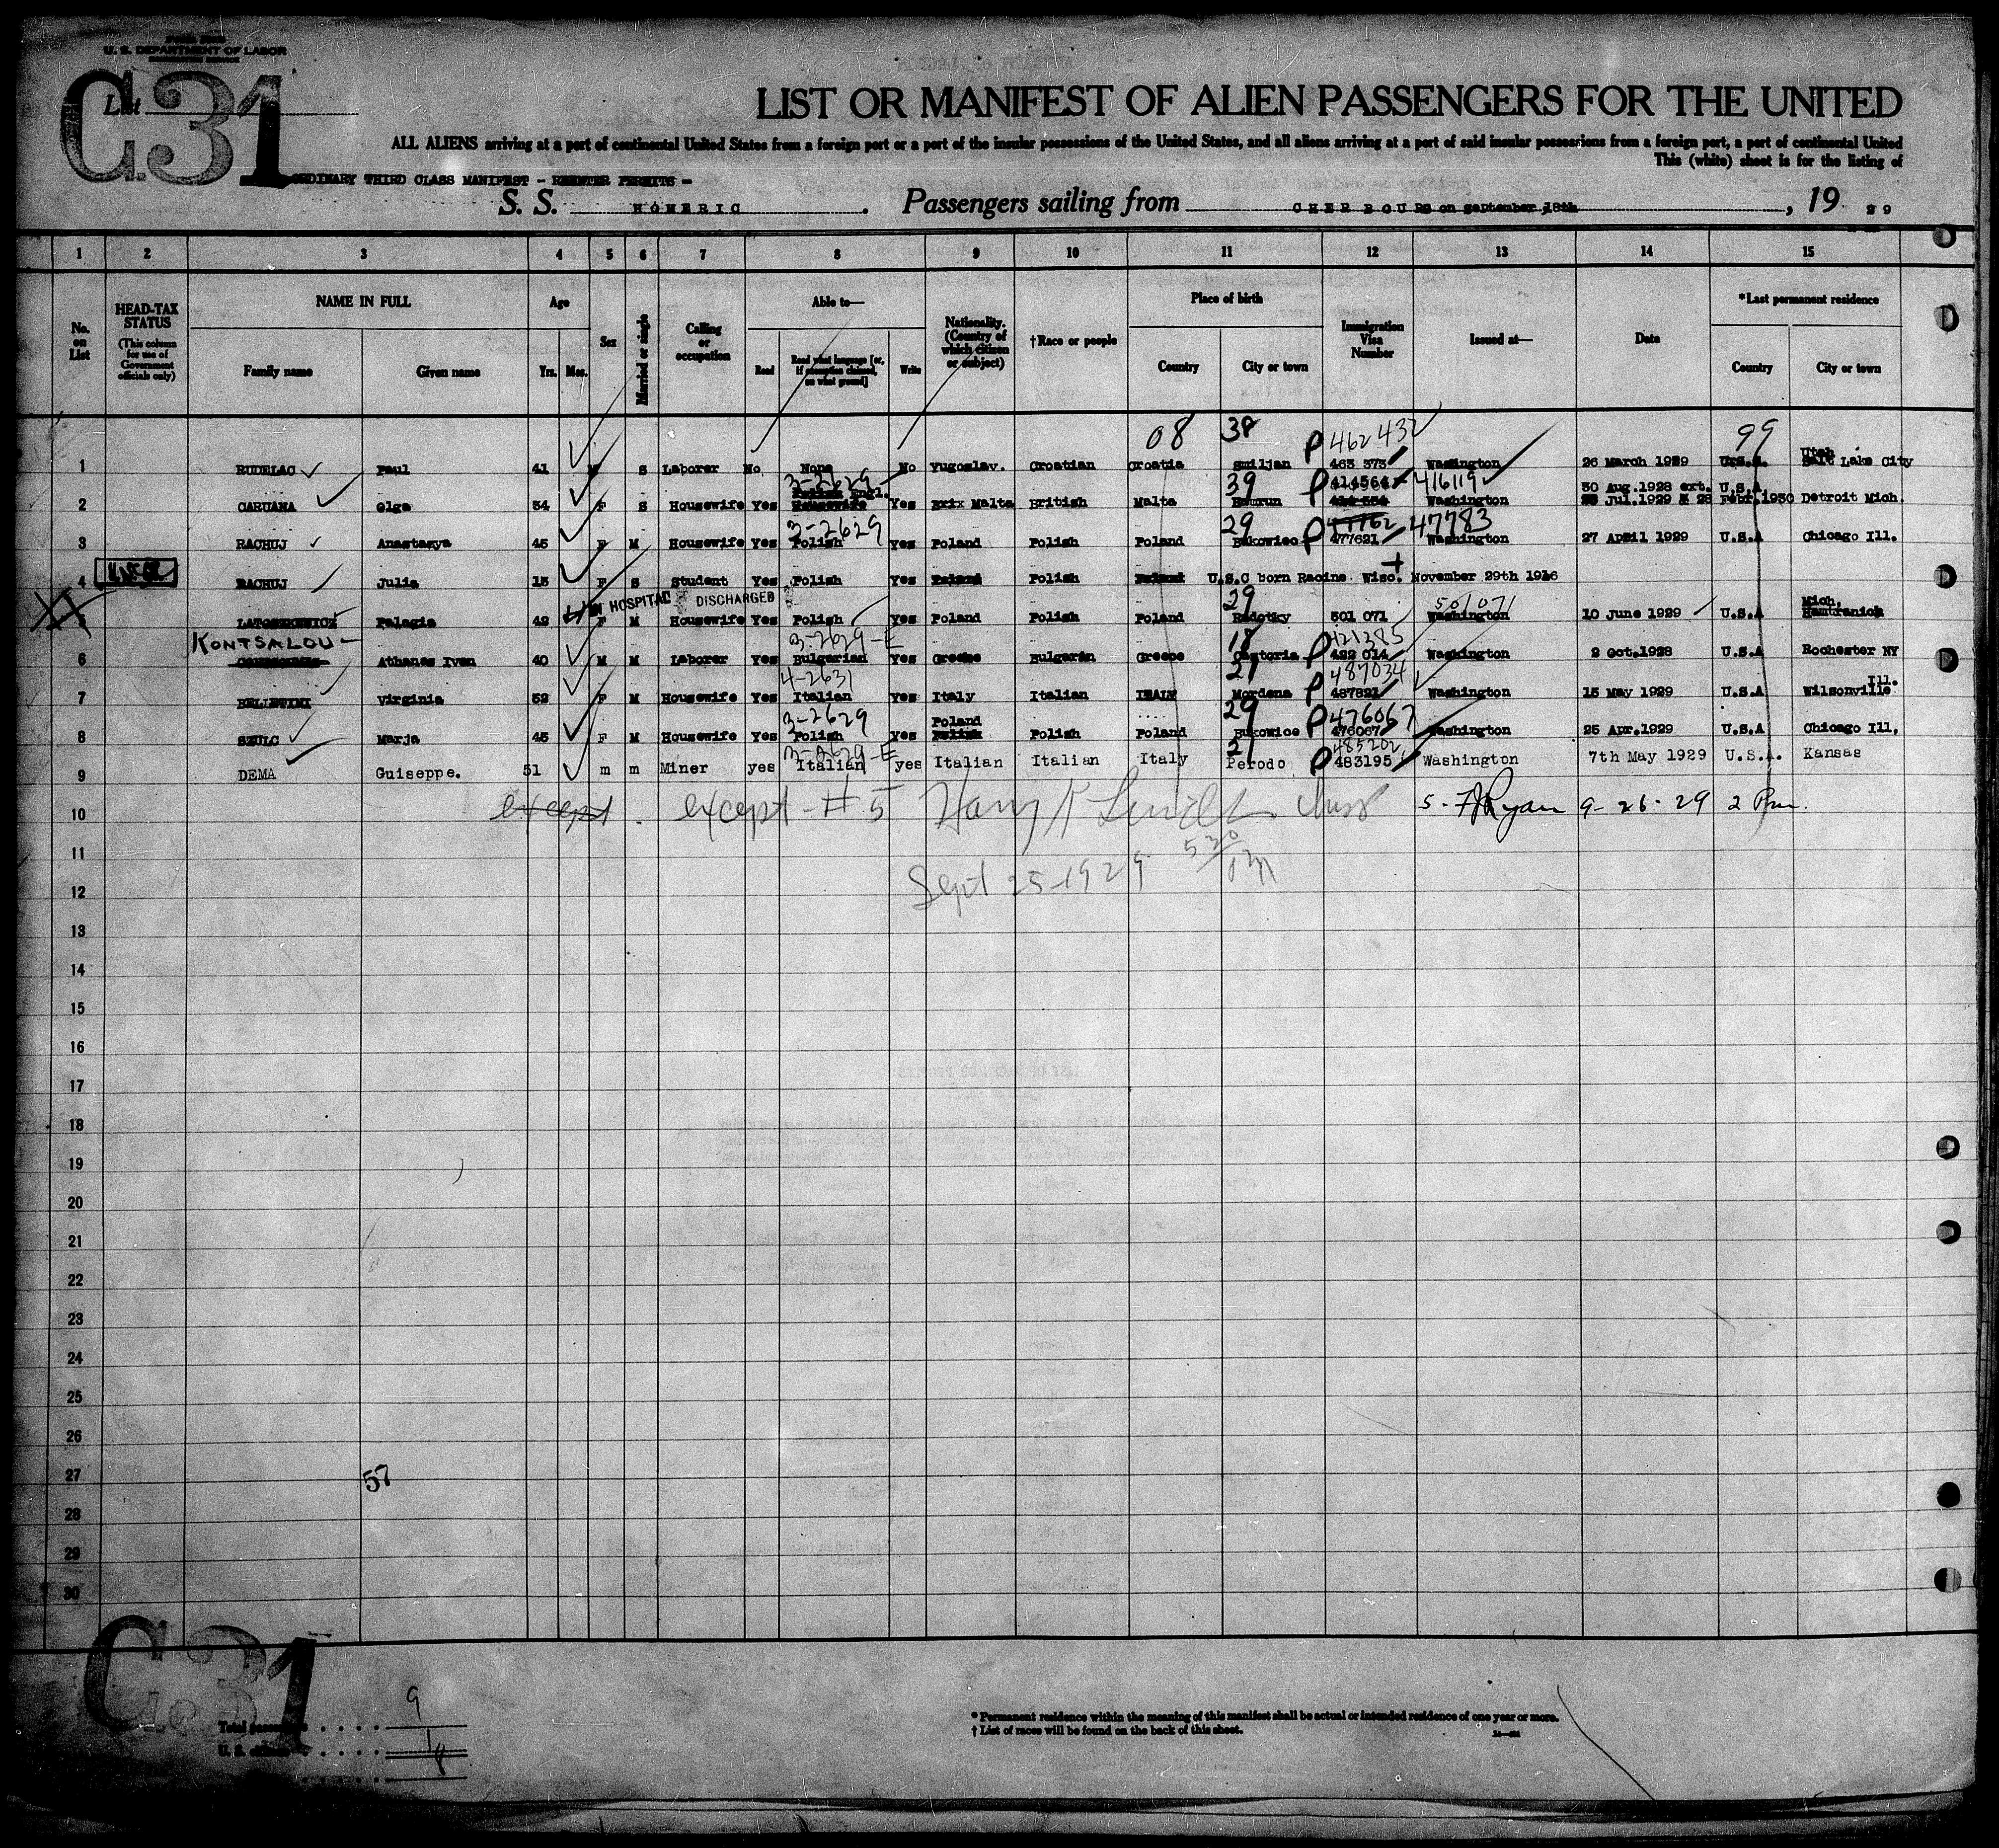 U. S. DEPARTMENT OF LABOR
List
C31
LIST OR MANIFEST OF ALIEN PASSENGERS FOR THE UNITED
ALL ALIENS arriving at a port of continental United States from a foreign port or a port of the insular possessions of the United States, and all aliens arriving at a port of said insular possessions from a foreign port, a port of continental United
This (white) sheet is for the listing of
ORDINARY THIRD CLASS MANIFEST - REENTER PERMITS -
S. S. HOMERIC . Passengers sailing from CHERBOURG on September 18th , 19 29
1 2 3 4 5 6 7 8 9 10 11 12 13 14 15
No. on List
HEAD-TAX STATUS (This column for use of Government officials only)
NAME IN FULL Family name Given name
Age Yrs. Mos.
Sex
Married or single
Calling or occupation
Able to— Read Read what language [or, if exemption claimed, on what ground] Write
Nationality. (Country of which citizen or subject)
†Race or people
Place of birth Country City or town
Immigration Visa Number
Issued at—
Date
*Last permanent residence Country City or town
08 38 P 462432 99
1 RUDELAC Paul 41 M S Laborer No None No Yugoslav. Croatian Croatia Smiljan 463 373 Washington 26 March 1929 U.S.A. Utah Salt Lake City
3-2629 39 P 414564 416119 30 Aug.1928 ext. U.S.A
2 CARUANA Olga 34 F S Housewife Yes Engl. Yes Brix Malta British Malta Hamrun Washington Jul.1929 & 28 Febr.1930 Detroit Mich.
3-2629 29 P 47762 47783
3 RACHUJ Anastazya 45 F M Housewife Yes Polish Yes Poland Polish Poland Bukowiec 477621 Washington 27 April 1929 U.S.A Chicago Ill.
4 RACHUJ Julia 13 F S Student Yes Polish Yes Poland Polish Poland U.S.C born Racine Wisc. November 29th 1916
IN HOSPITAL DISCHARGED 29 501071
5 LATOSZKEWICZ Pelagia 42 F M Housewife Yes Polish Yes Poland Polish Poland 501 071 Washington 10 June 1929 U.S.A Mich. Hamtramck
KONTSALOU 3-2629-E 18 P 421285
6 Athanas Ivan 40 M M Laborer Yes Bulgarian Yes Greece Bulgarian Greece Castoria 422 014 Washington 2 Oct.1928 U.S.A Rochester NY
4-2631 21 P 487034
7 BELLETINI Virginia 52 F M Housewife Yes Italian Yes Italy Italian ITALY Mordena 487821 Washington 15 May 1929 U.S.A Wilsonville Ill.
3-2629 29 P 476067
8 SZULC Marja 45 F M Housewife Yes Polish Yes Poland Polish Poland Bukowice 476067 Washington 25 Apr.1929 U.S.A Chicago Ill.
3-2629-E 21 P 485202
9 DEMA Guiseppe. 51 m m Miner yes Italian yes Italian Italian Italy Perodo 483195 Washington 7th May 1929 U.S.A. Kansas
10 except except - #5 Harry S. Ryan 9-26-29 2 Pm.
11
12 Sept 25-1929 5 20 PM
13
14
15
16
17
18
19
20
21
22
23
24
25
26
27 57
28
29
30
C31
Total passengers 9
U. S. citizens 1
* Permanent residence within the meaning of this manifest shall be actual or intended residence of one year or more.
† List of races will be found on the back of this sheet.